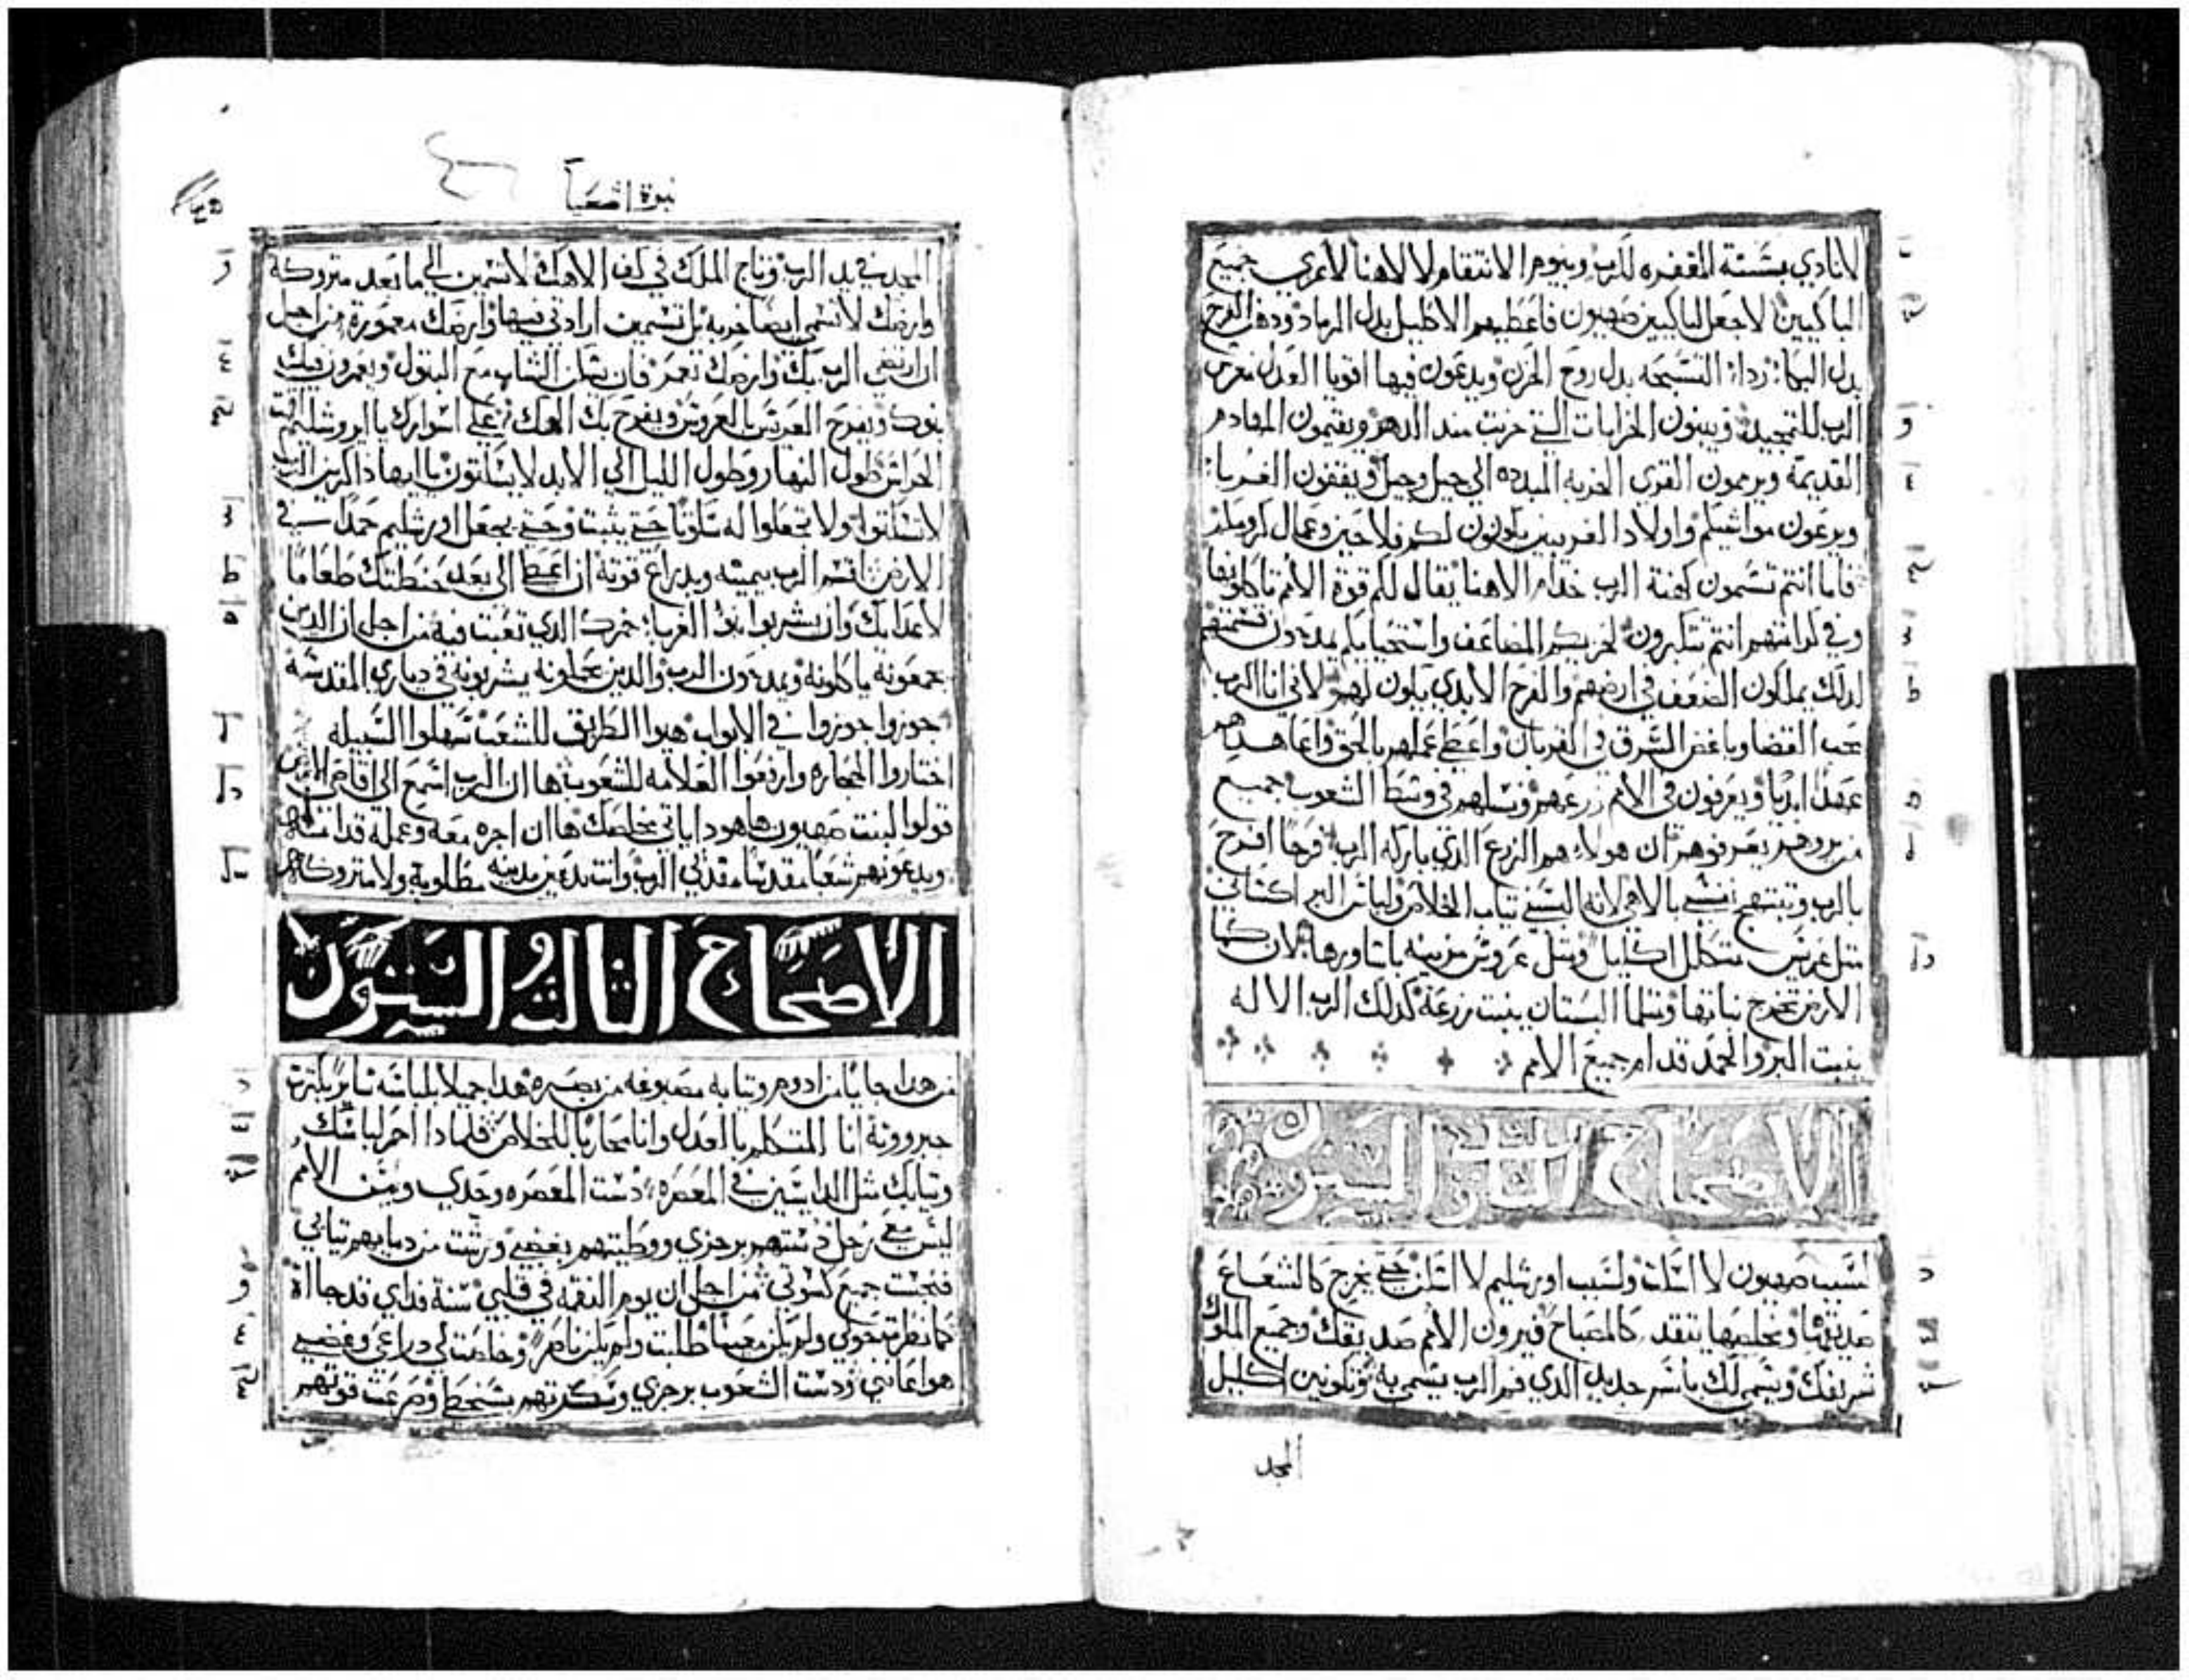 لانادي بسنة المغفره للرب وبيوم الانتقام لالاهنا لاعزي جميع
الباكيين لاجعل لباكيين صهيون فاعطيهم الاكليل بدل الرماد ودهن الفرح
بدل البكا رداء التسبحه بدل روح الحزن ويدعون فيها اقويا العدل مغرس
الرب للتمجيد ويبنون الخرابات التي خربت مند الدهر ويقيمون المهادم
القديمة ويرممون القرى الخربه المبدده الى جيل وجيل ويقفون الغربا
ويرعون مواشيكم واولاد الغريبين يكونون لكم فلاحين وعمال كرومكم
فاما انتم تسمون كهنة الرب خدام الاهنا يقال لكم قوة الامم تاكلونها
وفي كرامتهم انتم تتكبرون لخزيكم المضاعف واستحيايكم يمدحون قسمتهم
لدلك يملكون الضعف في ارضهم والفرح الابدي يكون لهم لاني انا الرب
محب القضا وباغض السرق في القربان واعطي عملهم بالحق واعاهدهم
عهدا ابديا ويعرفون في الامم زرعهم ونسلهم في وسط الشعوب جميع
من يروهم يعرفوهم ان هولاء هم الزرع الذي باركه الرب فرحا افرح
بالرب وتبتهج نفسي بالاهي لانه البسني تياب الخلاص ولباس البر اكساني
متل عريس متكلل اكليل ومتل عروس مزينه باساورها لان كما
الارض تخرج نباتها ومتلما البستان ينبت زرعه كدلك الرب الاله
ينبت البر والحمد قدام جميع الامم
الاصحاح التاني والستون
لسبب صهيون لا اسكت ولسبب اورشليم لا اسكن حتى يخرج كالشعاع
صديقها ومخلصها يتقد كالمصباح فيرون الامم صديقك وجميع الملوك
شريفك ويسمى لك باسم جديد الدي فم الرب يسمي به وتكونين اكليل
المجد
نبوة اشعيا
المجد في يد الرب وتاج الملك في كف الاهك لاتسمين الى ما بعد متروكة
وارضك لاتسمى ايضا خربه بل تسمين ارادتي فيها وارضك معمورة من اجل
ان ارتضى الرب بك وارضك تعمر فان يسكن الشاب مع البتول ويعمرون فيك
بنوك ويفرح العريس بالعروس ويفرح بك الهك على اسوارك يا اورشليم اقمت
الحراس طول النهار وطول الليل الى الابد لايسكتون يا ايها داكرين الرب
لاتسكتوا ولا تجعلوا له سكوتا حتى يثبت وحتى يجعل اورشليم حمدا في
الارض اقسم الرب بيمينه وبدراع قوته ان اعطى الى بعد حنطتك طعاما
لاعدايك وان يشربوا بنو الغربا خمرك الدي تعبت فيه من اجل ان الدين
يجمعونه ياكلونه ويمدحون الرب والدين يحملونه يشربونه في دياري المقدسة
جوزوا جوزوا في الابواب هيوا الطريق للشعب سهلوا السبيله
اختاروا الحجاره وارفعوا العلامه للشعوب ها ان الرب اسمع الى اقاصي الارض
قولوا لبنت صهيون ها هودا ياتي مخلصك ها ان اجره معه وعمله قدامه
ويدعونهم شعبا مقدسا مفدني الرب وانت تدعين مدينه مطلوبة ولا متروكه
الاصحاح التالت والستون
من هدا جايا من ادوم وتيابه مصبوغه من بصره هدا جميلا بلباسه ساير بكترت
جبروته انا المتكلم بالعدل وانا محاربا للخلاص فلمادا احمر لباسك
وتيابك متل الدايسين في المعصره دست المعصره وحدي ومن الامم
ليس معي رجل دستهم برجزي ووطيتهم بغضبي ورشت من دمايهم تيابي
فنجست جميع كسوتي من اجل ان يوم النقمه في قلبي سنة فداي قد جااة
كما نظرت حولي ولم يكن معينا طلبت ولم يكن ناصر وخلصت لي دراعي وغضبي
هو اعانني ودست الشعوب برجزي وسكرتهم بسخطي وصرعت قوتهم